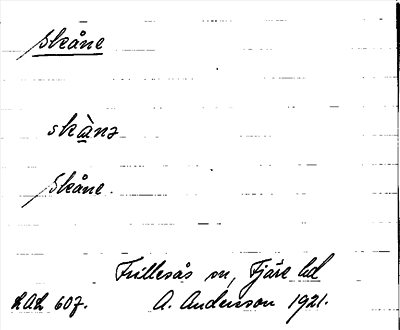 Skåne
skànə
Skåne.
Frillesås sn, Fjäre hd
LAL 607. A. Andersson 1921.